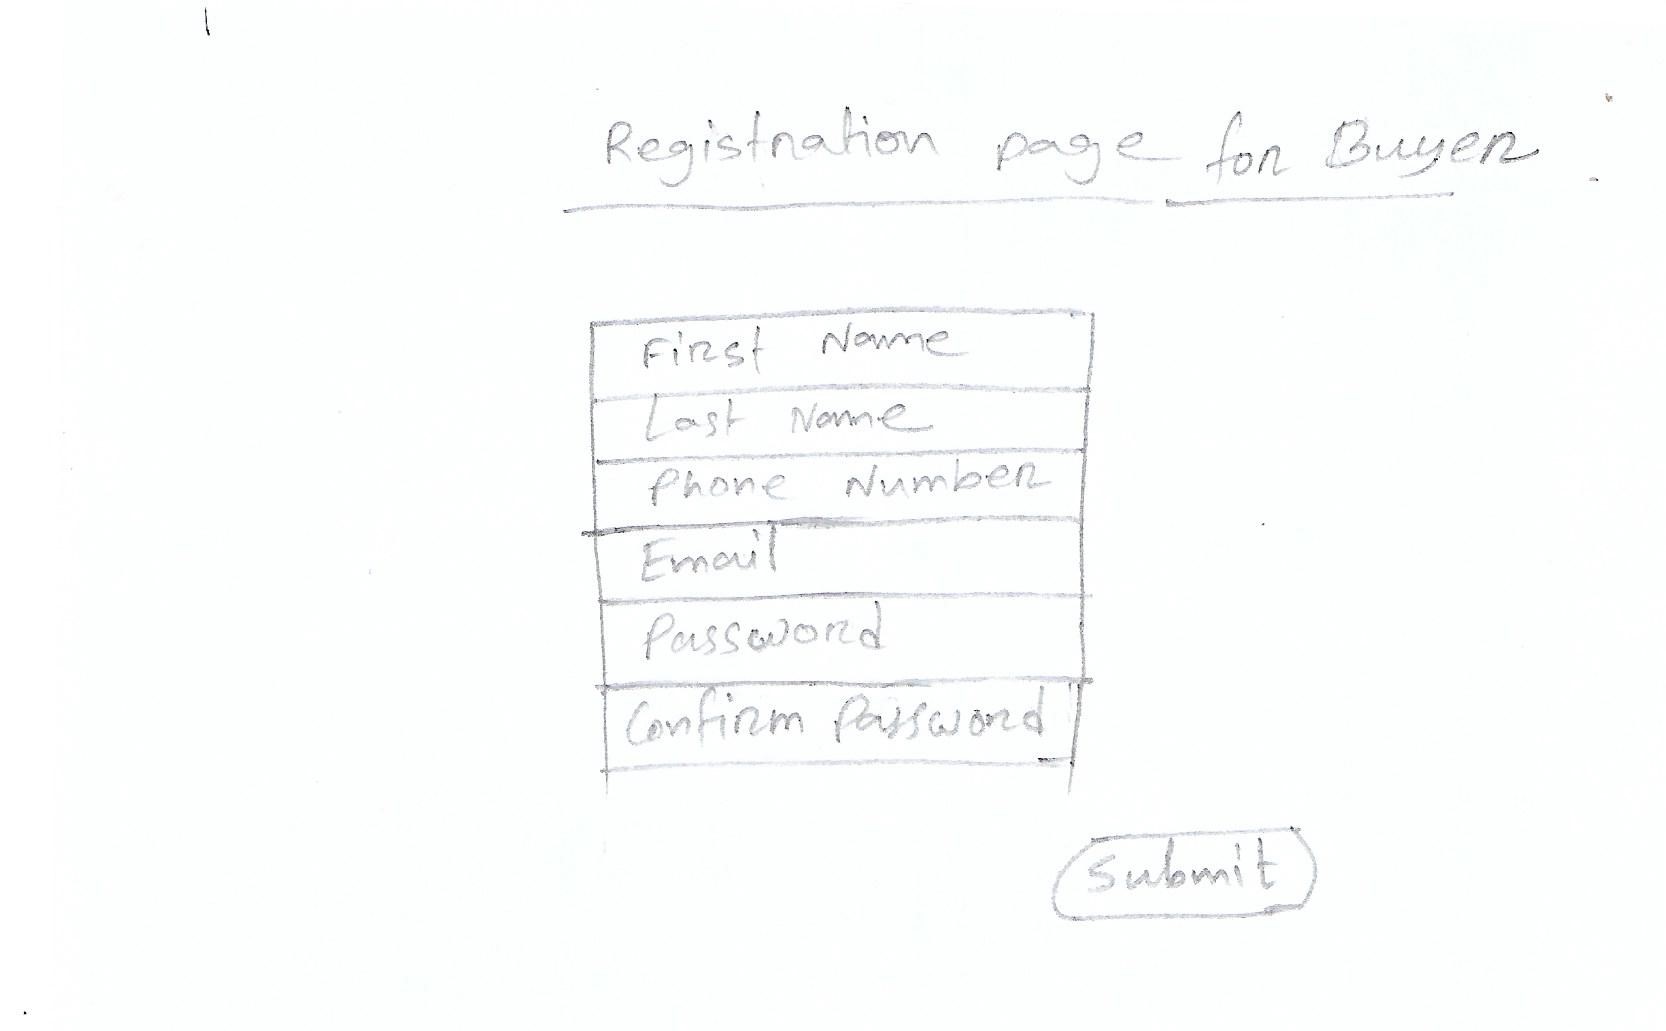 Registration page for Buyer
First Name
Last Name
Phone Number
Email
Password
Confirm Password
Submit